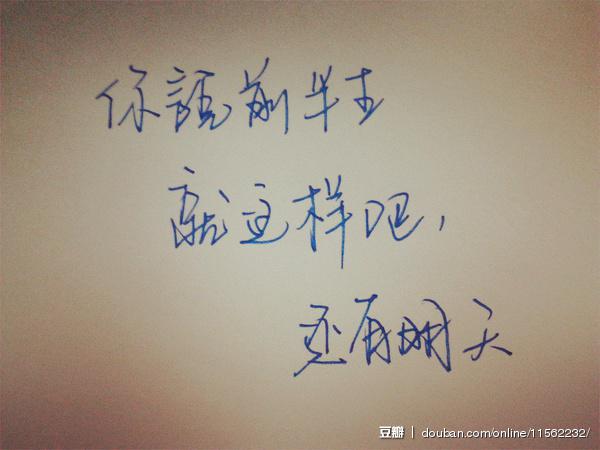 你說前半生
就这样吧，
还有明天
豆瓣 | douban.com/online/11562232/